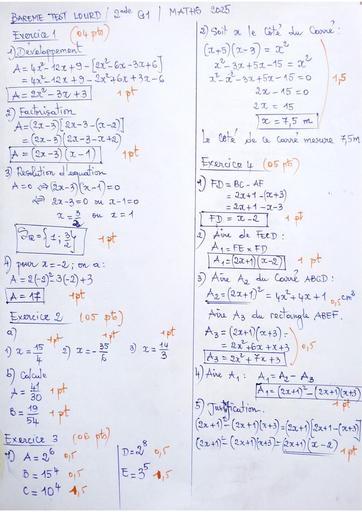 BAREME TEST LOURD / 2nde G1 / MATHS 2025
Exercice 1 (04 pts)
1) Développement
A = 4x² - 12x + 9 - [2x² - 6x - 3x + 6]
= 4x² - 12x + 9 - 2x² + 6x + 3x - 6
A = 2x² - 3x + 3 1 pt
2) Factorisation
A = (2x-3)[2x-3-(x-2)]
= (2x-3)(2x-3-x+2)
A = (2x-3)(x-1) 1pt
3) Résolution d'equation
A = 0 ⇔ (2x-3)(x-1) = 0
⇔ 2x-3 = 0 ou x-1 = 0
x = 3/2 ou x = 1
S_R = {1 ; 3/2} 1pt
4) pour x = -2 ; on a :
A = 2(-2)² - 3(-2) + 3
A = 17 1pt
Exercice 2 (05 pts)
a) 1pt 1pt 1pt
1) x = 15/4 2) x = -35/6 3) x = 14/3
b) Calcule
A = 41/30 1 pt
B = 19/54 1 pt
Exercice 3 (06 pts)
1) A = 2⁶ 0,5
B = 15⁴ 0,5
C = 10⁴ 0,5
D = 2⁸ 0,5
E = 3⁵ 0,5
2) Soit x le côté du carré :
(x+5)(x-3) = x²
x² - 3x + 5x - 15 = x²
x² - x² - 3x + 5x - 15 = 0
2x - 15 = 0 1,5
2x = 15
x = 7,5 m
Le côté de ce carré mesure 7,5m
Exercice 4 (05 pts)
1) FD = BC - AF
= 2x+1 - (x+3)
= 2x+1 - x - 3
FD = x - 2 1 pt
2) Aire de FECD :
A₁ = FE × FD
A₁ = (2x+1)(x-2) 1 pt
3) Aire A₂ du Carré ABCD :
A₂ = (2x+1)² = 4x² + 4x + 1 cm² 0,5
Aire A₃ du rectangle ABEF.
A₃ = (2x+1)(x+3)
= 2x² + 6x + x + 3 0,5
A₃ = 2x² + 7x + 3
4) Aire A₁ : A₁ = A₂ - A₃
A₁ = (2x+1)² - (2x+1)(x+3)
1pt
5) Justification.
(2x+1)² - (2x+1)(x+3) = (2x+1)[2x+1-(x+3)]
(2x+1)² - (2x+1)(x+3) = (2x+1)(x-2) 1pt